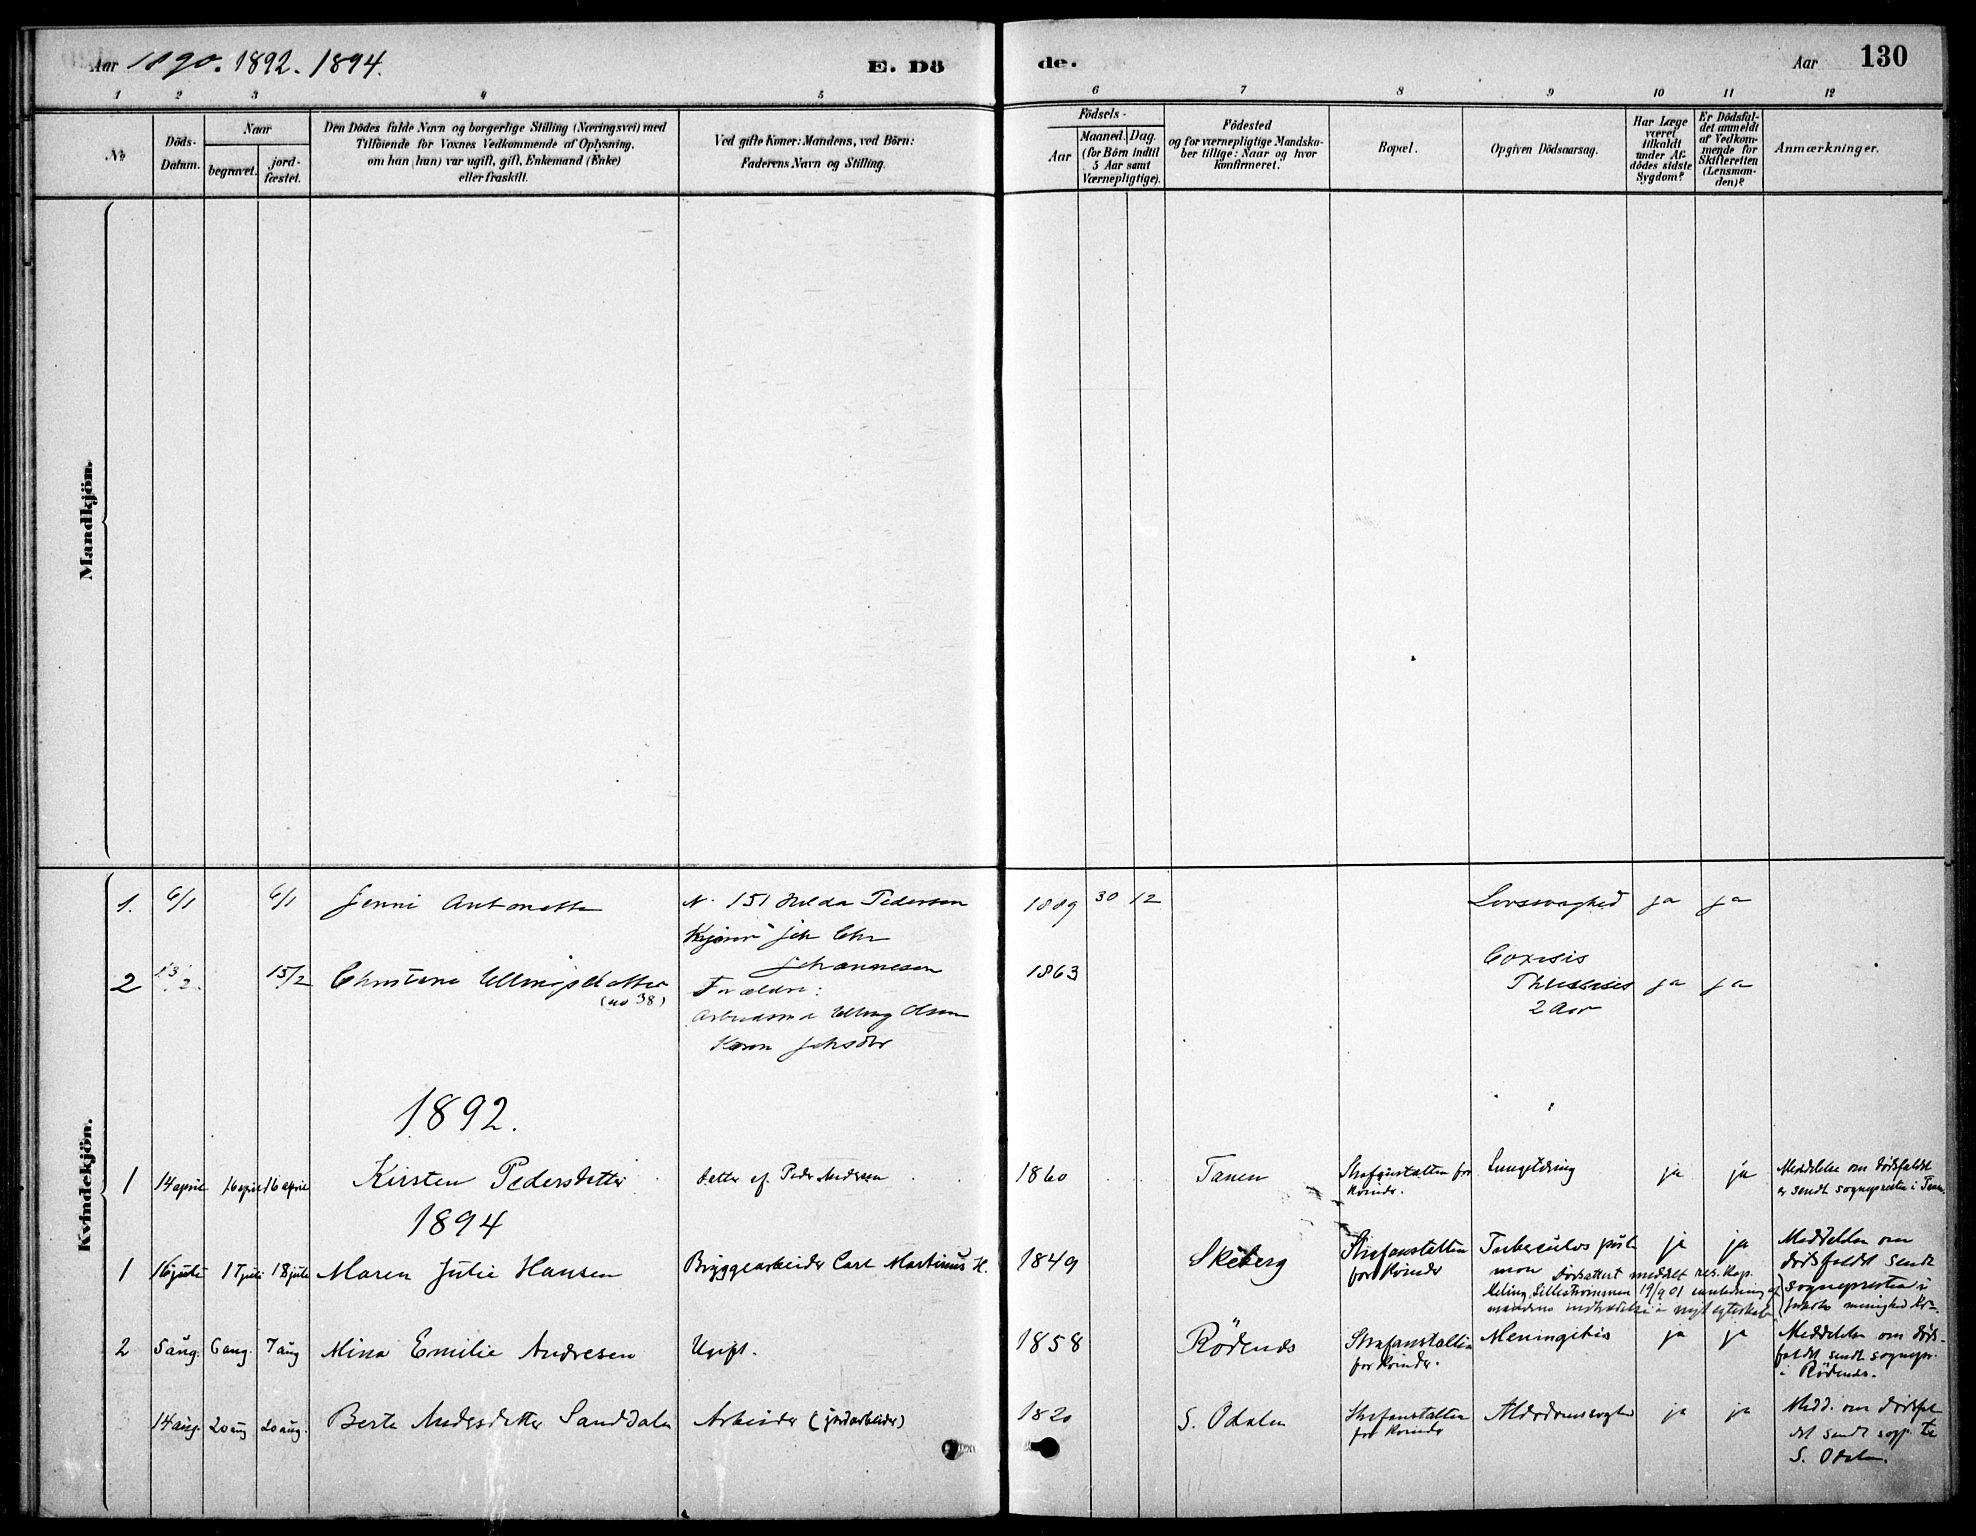 Aar 1890. 1892. 1894.
E. Döde.
Aar 130
1 2 3 4 5 6 7 8 9 10 11 12
No
Döds-
Datum.
Naar
begravet.
jord-
fæstet.
Den Dödes fulde Navn og borgerlige Stilling (Næringsvei) med
Tilföiende for Voxnes Vedkommende af Oplysning,
om han (hun) var ugift, gift, Enkemand (Enke)
eller fraskilt.
Ved gifte Koner: Mandens, ved Börn:
Faderens Navn og Stilling.
Födsels-
Aar
Maaned. Dag.
(for Börn indtil
5 Aar samt
Værnepligtige).
Födested
og for værnepligtige Mandska-
ber tillige: Naar og hvor
konfirmeret.
Bopæl.
Opgiven Dödsaarsag.
Har Læge
været
tilkaldt
under Af-
dödes sidste
Sygdom?
Er Dödsfal-
det anmeldt
af Vedkom-
mende for
Skifteretten
(Lensman-
den)?
Anmærkninger.
Mandkjön.
Kvindekjön.
1. 6/1 6/1 Jenni Antonette N. 151 Hulda Pedersen 1889 30 12 Livssvaghed ja ja
Joh Chr
Johannesen
2 13/2 15/2 Christine Ellingsdatter 1863 Coxisis ja ja
(no 38)
Forældre:
Elling Olsen
2 Aar
Karen Johsdtr
1892.
1 14 april 16 april 16 april Kirsten Pedersdatter datter af Peder Andersen 1860 Tanen Strafanstalten for Lungetæring ja ja Meddelelse om dødsfaldet
Kvinder.
er sendt sognepresten i Tanen.
1894
1 16 juli 17 juli 18 juli Maren Julie Hansen Bryggearbeider Carl Martinus H. 1849 Skeberg Strafanstalten Tuberculos ja ja Meddelelse om
for Kvinder
dødsfaldet sendt
Dødsattest meddelt res. kap.
sognepresten i
19/9 01
menighed
2 5 aug. 6 aug. 7 aug Mina Emilie Andresen Ugift. 1858 Rödenes Strafanstalten Meningitis ja ja Meddelelse om døds-
for Kvinder.
faldet sendt sognepr.
i Rødenes.
14 aug. 20 aug 20 aug. Berte Andersdatter Sanddalen Arbeider (jordarbeider) 1820 S. Odalen Strafanstalten Alderdomssvaghed ja ja Medd. om dødsfal
for Kvinder
det sendt sogp. til
S. Odalen.